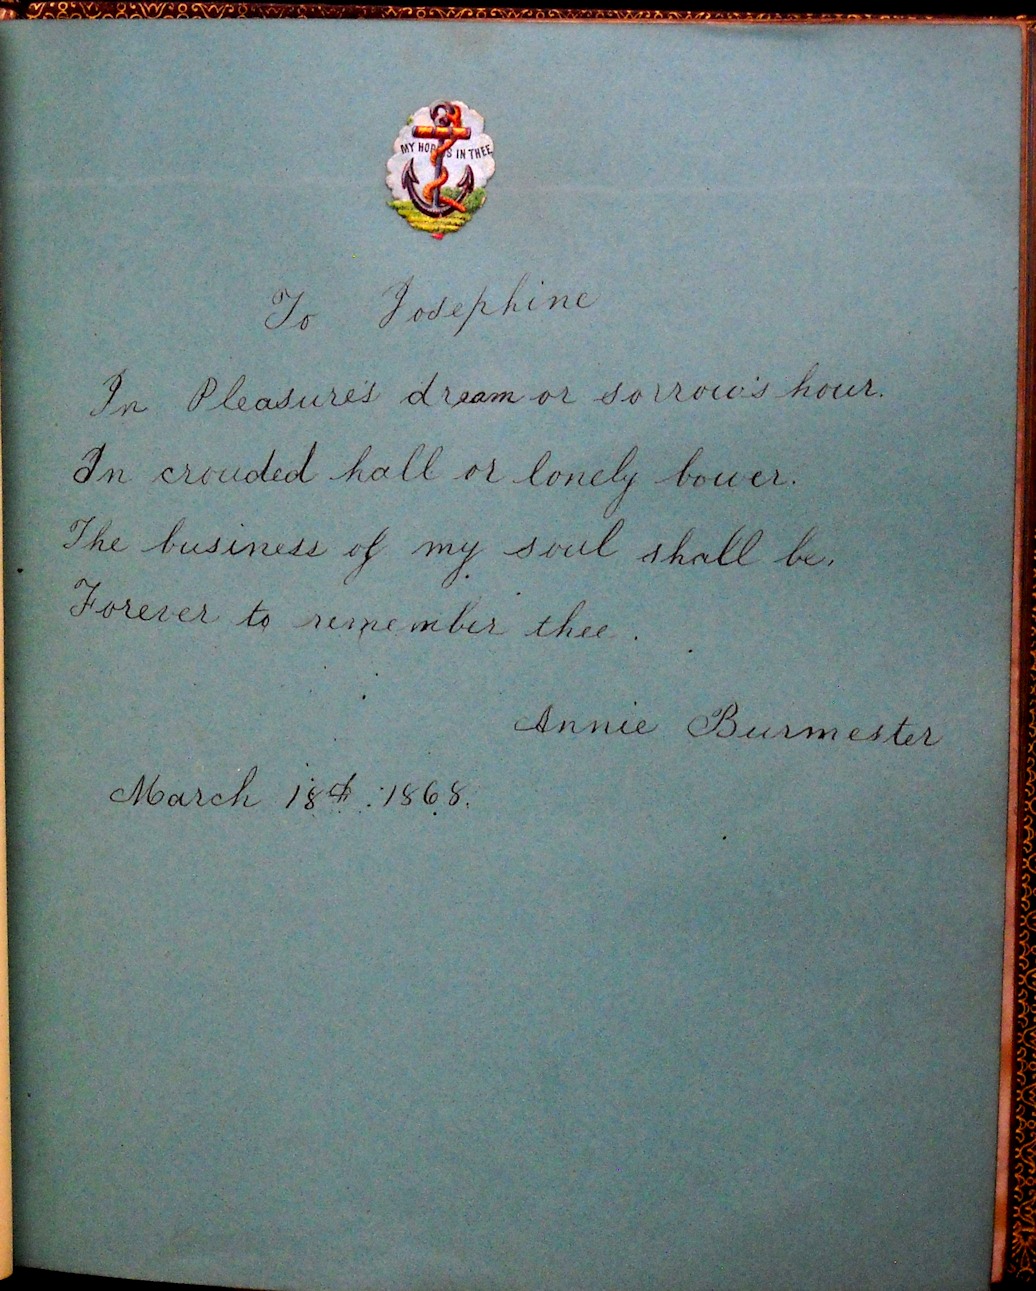 MY HOPE IS IN THEE
To Josephine
In Pleasure's dream or sorrow's hour.
In crowded hall or lonely bower.
The business of my soul shall be,
Forever to remember thee.
Annie Burmester
March 18th. 1868.